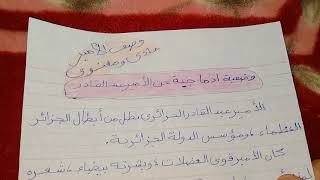 وصف الأمير
مادي ومعنوي
وضعية ادماجية عن الأمير عبد القادر
الأمير عبد القادر الجزائري بطل من أبطال الجزائر
العظماء، ومؤسس الدولة الجزائرية.
كان الأمير قوي العضلات، وبشرته بيضاء، شعره